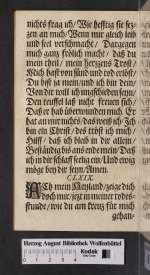 nichts frag ich/ Wie hefftig sie set-
zen an mich/ Wenn mir gleich leib
und seel verschmacht/ Dargegen
mich gantz frölich macht/ daß du
mein theil/ mein hertzens Trost/
Mich hast von sünd und tod erlöst/
Du bist ja mein/ und ich bin dein/
Von dir will ich ungschieden seyn/
Den teuffel laß nicht freuen sich/
Daß er hab überwunden mich/ Er
hat an mir nichts/ das weiß ich/ Ich
bin ein Christ/ des tröst ich mich/
Hilff/ daß ich bleib in dir allein/
Beständig bis ans ende mein/ Daß
ich in dir schlaff seelig ein/ Und ewig
möge bey dir seyn/ Amen.
CLXIX.
ACh mein Heyland/ zeige dich
doch mir/ jetzt in meiner todes-
stunde/ wie du am kreutz für mich
gehan-
Herzog August Bibliothek Wolfenbüttel
Kodak